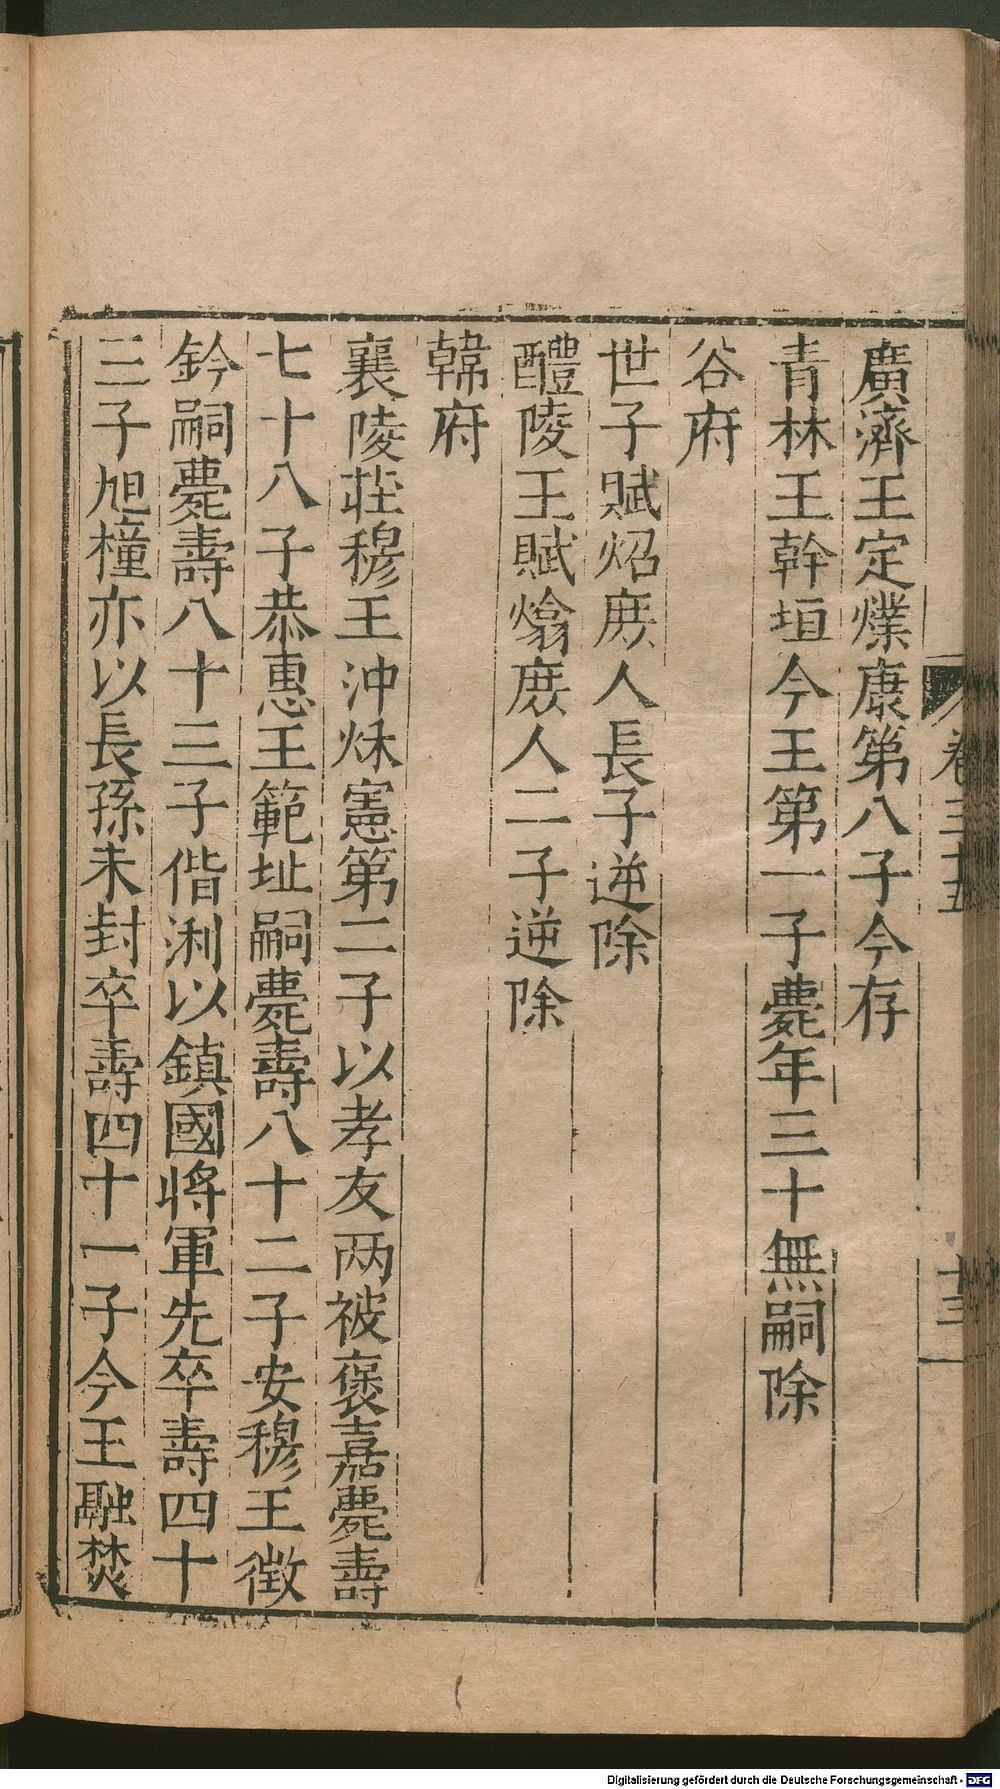 卷三十五
十三
廣濟王定㸁康第八子今存
青林王幹垣今王第一子薨年三十無嗣除
谷府
世子賦炤庶人長子逆除
醴陵王賦熻庶人二子逆除
韓府
襄陵莊穆王沖炑憲第二子以孝友两被褒嘉薨壽
七十八子恭惠王範址嗣薨壽八十二子安穆王徴
鈐嗣薨壽八十三子偕浰以鎮國将軍先卒壽四十
三子旭橦亦以長孫未封卒壽四十一子今王融焚
Digitalisierung gefördert durch die Deutsche Forschungsgemeinschaft - DFG